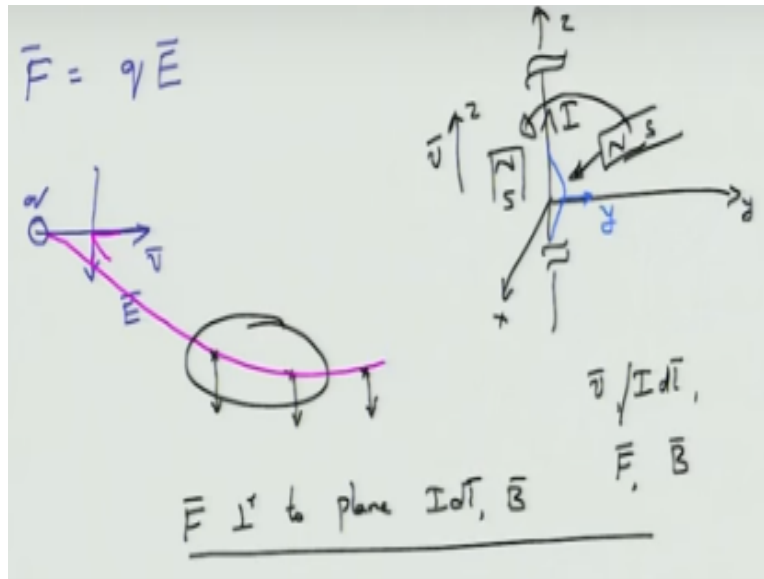 F̄ = qĒ
z
I
v̄ z
N S
N
S
y
y
x
q
v̄
Ē
v̄ / I dl̄,
F̄, B̄
F̄ ⊥ʳ to plane I dl̄, B̄